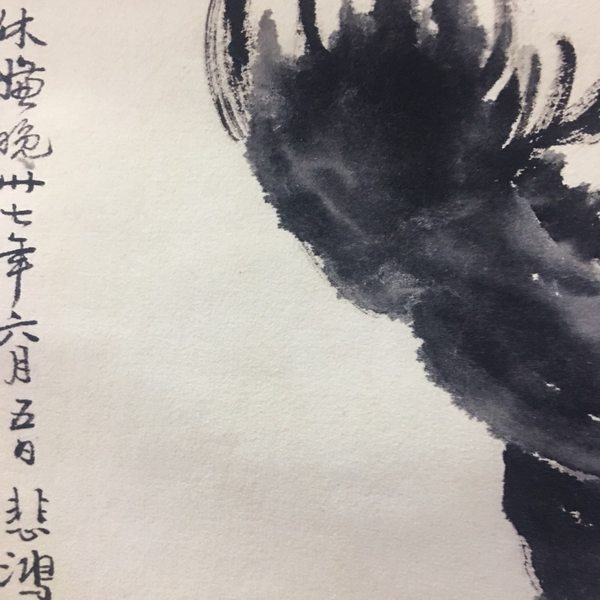 休嫌晚卅七年六月五日悲鴻